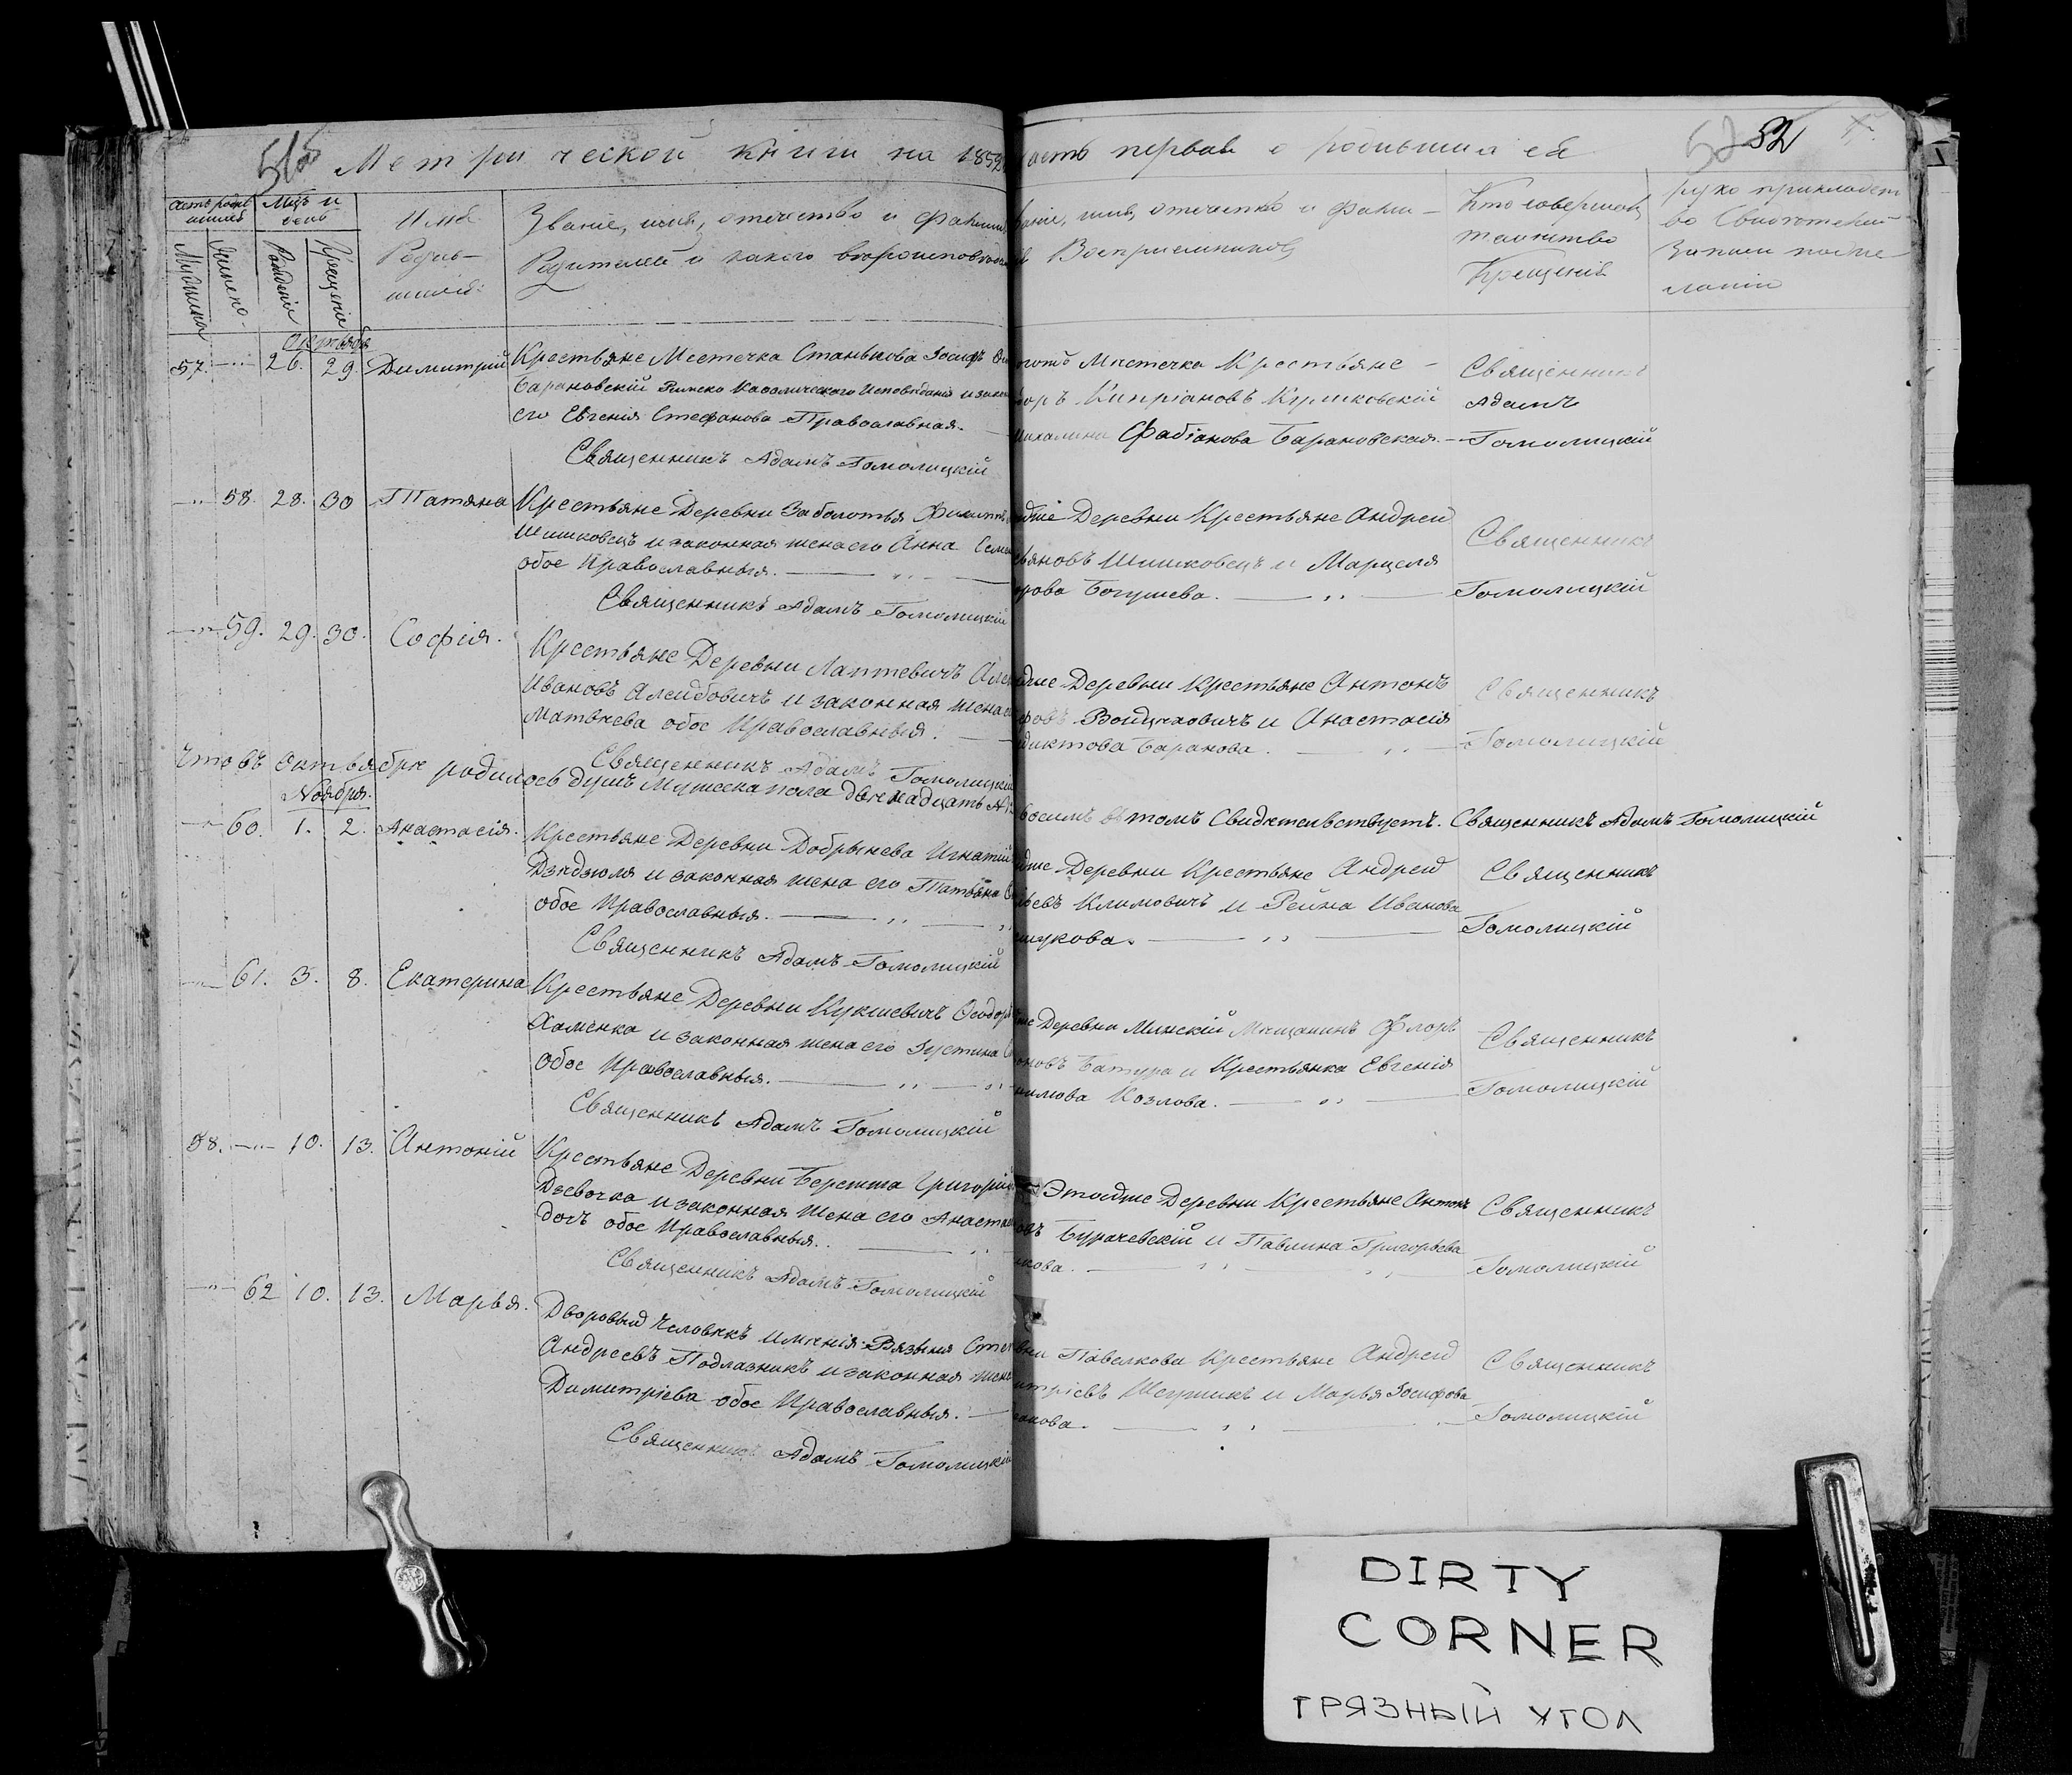 Метрической книги на 1859
часть первая о родившихся
52
Имя Родив-
шихся
Званіе, имя, отечество и фамилія
Родителей и какого вѣроисповѣданія
званіе, имя, отечество и фами-
Воспріемниковъ
Кто совершалъ
таинство
Крещенія
руко прикладст
во Свидѣтелей
записи по же
ланію
Мужеска
Женска
Рожденія
Крещенія
Октябрь
57. 26. 29. Димитрій
Крестьяне Местечка Станькова Іосифъ
Барановскій Римско Каѳолическаго Исповѣданія и
его Евгенія Стефанова Православная.
Священникъ Адамъ Гомолицкій
Местечка Крестьяне
Кипріановъ Курликовскій
Михалина Фабіанова Барановская.
Священникъ
Адамъ
Гомолицкій
58. 28. 30 Татяна
Крестьяне Деревни Заболотья
Шишковецъ и законная жена его Анна
обое Православныя.
Священникъ Адамъ Гомолицкій
Деревни Крестьяне Андрей
Шишковецъ и Марцеля
Богушева.
Священникъ
Гомолицкій
59. 29. 30. Софія.
Крестьяне Деревни Лаптевичъ
Ивановъ Алейдовичъ и законная жена
Матвѣева обое Православныя.
Священникъ Адамъ Гомолицкій
Деревни Крестьяне Антонъ
Войцеховичъ и Анастасія
Баранова.
Священникъ
Гомолицкій
Что въ Октябрѣ родилось душъ Мужеска пола двенадцать
восемъ въ томъ Свидѣтельствуетъ. Священникъ Адамъ Гомолицкій
Ноября.
60. 1. 2. Анастасія.
Крестьяне Деревни Добрынева Игнатій
Дзядзюля и законная жена его Татьяна
обое Православныя.
Священникъ Адамъ Гомолицкій
Деревни Крестьяне Андрей
Климовичъ и Рейна Иванова
Священникъ
Гомолицкій
61. 3. 8. Екатерина
Крестьяне Деревни Кукшевичъ Ѳеодоръ
Хаменка и законная жена его Іустина
обое Православныя.
Священникъ Адамъ Гомолицкій
Деревни Минскій Мѣщанинъ Флоръ
Батура и Крестьянка Евгенія
Козлова.
Священникъ
Гомолицкій
58. 10. 13. Антоній
Крестьяне Деревни Бережа Григорій
Дзевочка и законная жена его
обое Православныя.
Священникъ Адамъ Гомолицкій
Этойже Деревни Крестьяне Антонъ
Бурачевскій и Павлина Григорьева
Священникъ
Гомолицкій
62 10. 13. Марья.
Дворовый человѣкъ имѣнія Вязыня
Андреевъ Подлазникъ и законная жена
Димитріева обое Православныя.
Священникъ Адамъ Гомолицкій
Павелкова Крестьяне Андрей
и Марья Іосифова
Священникъ
Гомолицкій
DIRTY
CORNER
ГРЯЗНЫЙ УГОЛ